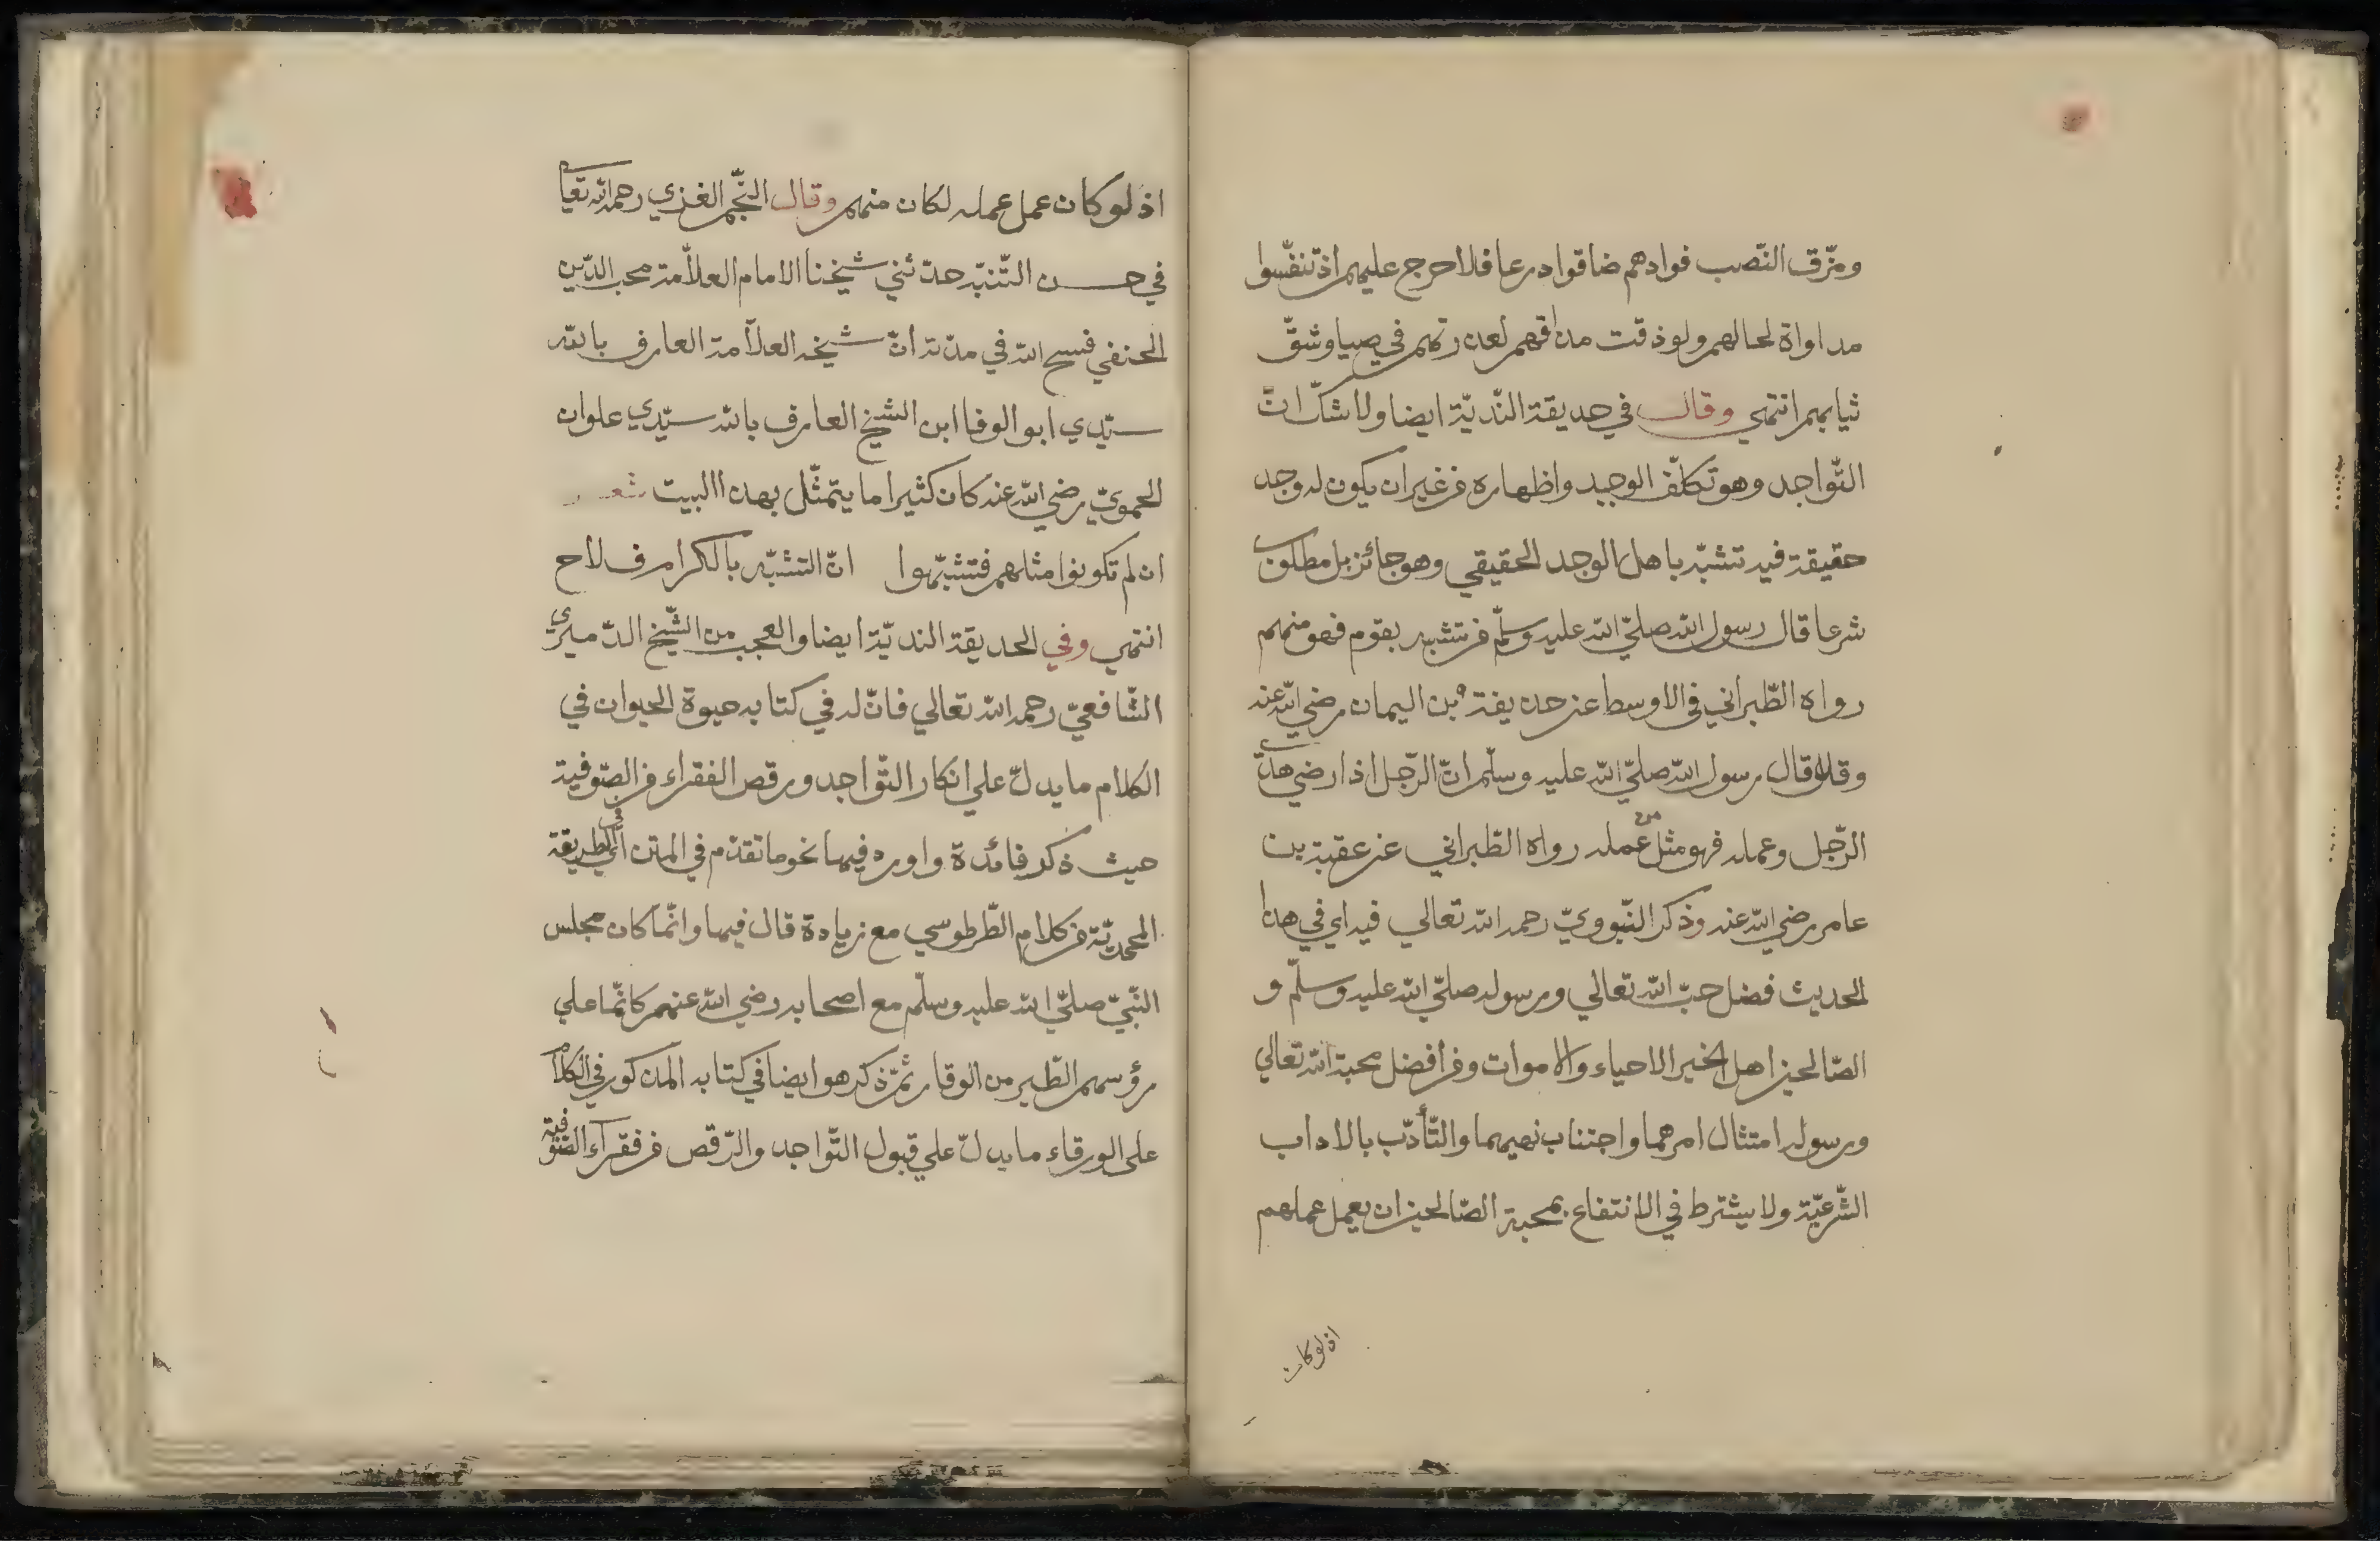 ومزّق النّصب فوادهم ضاقوا درعا فلا حرج عليهم اذ تنفّسوا
مداواة لحالهم ولو ذقت مذاقهم لعذرتهم في صياوشقّ
ثيابهم انتهي وقال في حديقة النّديّة ايضا ولا شكّ انّ
التّواجد وهو تكلّف الوجد واظهاره من غير ان يكون له وجد
حقيقة فيه تشبّه باهل الوجد الحقيقي وهو جائز بل مطلوب
شرعا قال رسول الله صلّي الله عليه وسلّم من تشبه بقوم فهو منهم
رواه الطّبراني في الاوسط عن حذيفة بن اليمان رضي الله عنه
وقال قال رسول الله صلّي الله عليه وسلّم انّ الرّجل اذا رضي هدي
الرّجل وعمله فهو مثل عمله رواه الطّبراني عن عقبة بن
عامر رضي الله عنه وذكر النّووويّ رحمه الله تعالي فيه اي في هذا
الحديث فضل حبّ الله تعالي ورسوله صلّي الله عليه وسلّم و
الصّالحين اهل الخير الاحياء والاموات ومن افضل محبة الله تعالي
ورسوله امتثال امرهما واجتناب نهيهما والتّأدّب بالاداب
الشّرعيّة ولا يشترط في الانتفاع بمحبة الصّالحين ان يعمل عملهم
اذ لو كان
اذ لو كان عمل عمله لكان منهم وقال النّجم الغزي رحمه الله تعالي
في حسن التّنبّه حدّثني شيخنا الامام العلاّمة محب الدّين
الحنفي فسح الله في مدّته انّ شيخه العلاّمة العارف بالله
سيّدي ابو الوفا ابن الشيخ العارف بالله سيّدي علوان
الحمويّ رضي الله عنه كان كثيرا ما يتمثّل بهذا البيت شعر
ان لم تكونوا مثلهم فتشبّهوا انّ التشبّه بالكرام فلاح
انتهي وفي الحديقة النديّة ايضا والعجب من الشّيخ الدّميري
الشّافعيّ رحمه الله تعالي فانّ له في كتابه حيوة الحيوان في
الكلام ما يدلّ علي انكار التّواجد ورقص الفقراء من الصّوفية
حيث ذكر فائدة واورد فيها نحو ما تقدّم في المتن اي الطريقة
المحمديّة من كلام الطّرطوسي مع زيادة قال فيها وانّما كان مجلس
النّبيّ صلّي الله عليه وسلّم مع اصحابه رضي الله عنهم كانّما علي
رؤسهم الطّير من الوقار ثمّ ذكر هو ايضا في كتابه المذكور في الكلام
علي الورقاء ما يدلّ علي قبول التّواجد والرّقص من فقراء الصّوفية